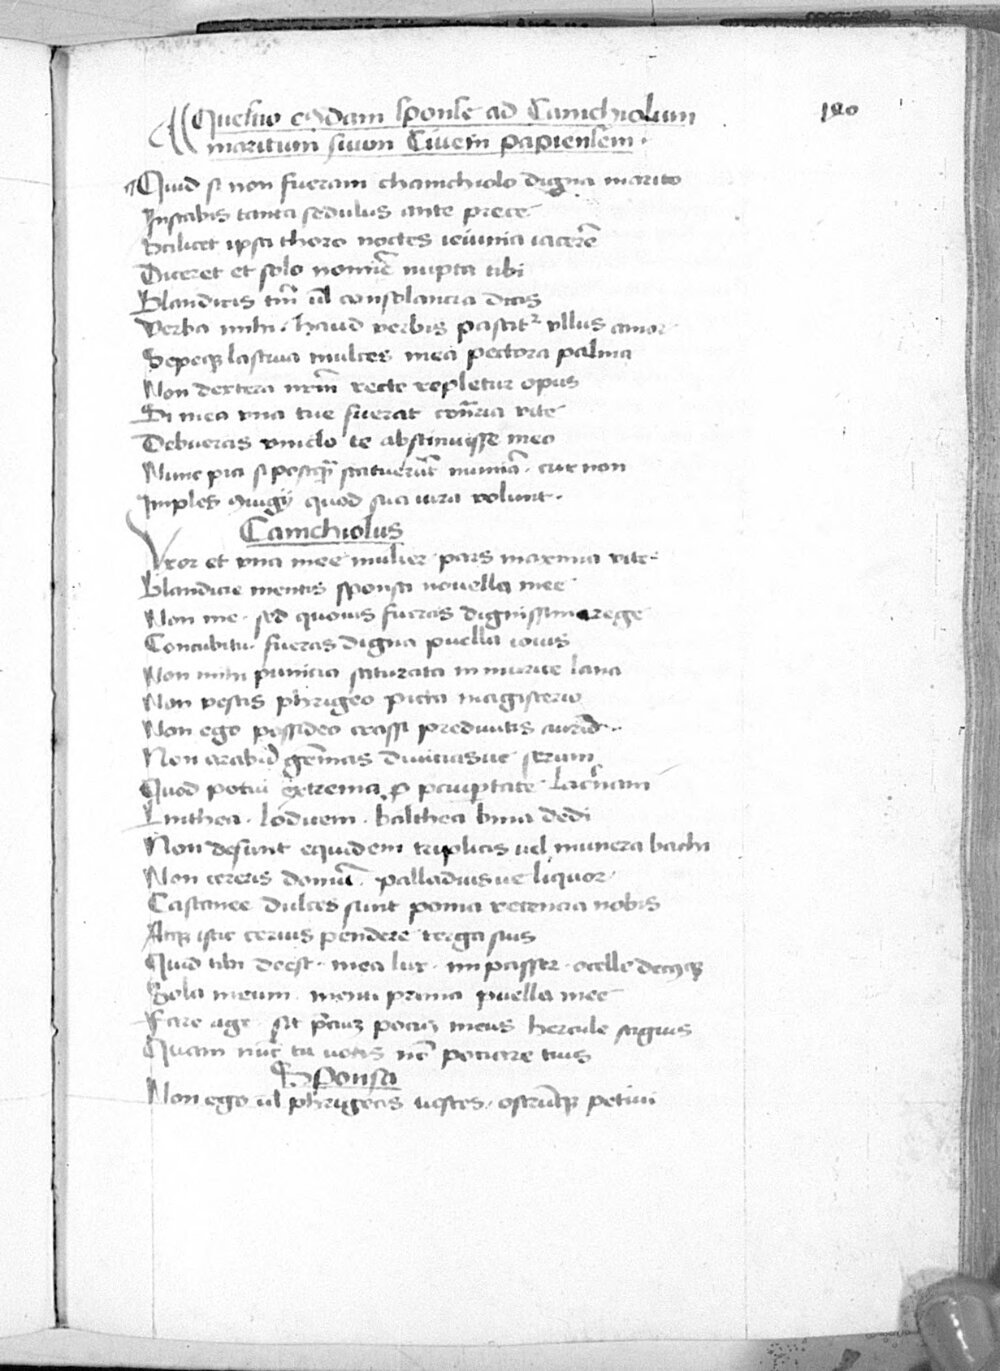 180
Questio cuiusdam sponse ad Camchiolum
maritum suum Civem papiensem.
Quid si non fueram chamchiolo digna marito
Instabis tanta sedulus ante prece
Scilicet ipsa thoro noctes ieiunia iacerē
Diceret et solo nomīe nupta tibi
Blandiciis tm̄ ul consolancia dicis
Verba mihi. haud verbis pascit2 ullus amor
Sepeqꝫ lasciva mulces mea pectora palma
Non dextera nrm̄ recte repletur opus
Si mea una tue fuerat cont̄ria vite
Debueras vinclo te abstinuisse meo
Nunc pia si postq̄ statuerūt numīa. cur non
Imples 9iugij quod sua iura volunt.
Camchiolus
Uxor et una mee mulier pars maxima vite
Blandicie mentis sponsa novella mee
Non me. sed quovis fueras dignissima rege
Concubitu fueras digna puella iovis
Non mihi punicia saturata in murice lana
Non vestis phrigeo picta magisterio
Non ego possideo crassi predivitis aurum
Non arabum gēmas diviciasve serum
Quod potui extrema ꝑ paup̄tate
Linthea. loduem. balthea bina dedi
Non desunt equidem triplicis vel munera bachi
Non cereris domui. palladiusve liquor
Castanee dulces sunt poma recencia nobis
Atqꝫ istic cerius pendere terga suis
Quid tibi deest. mea lux. mi passer. ocelle decusqꝫ
Sola meum. menti prima puella mee
Fare age. sit
Quam nūc tu votis nōc tuis
Sponsa
Non ego ul phrygecis vestes. ostrumqꝫ petivi